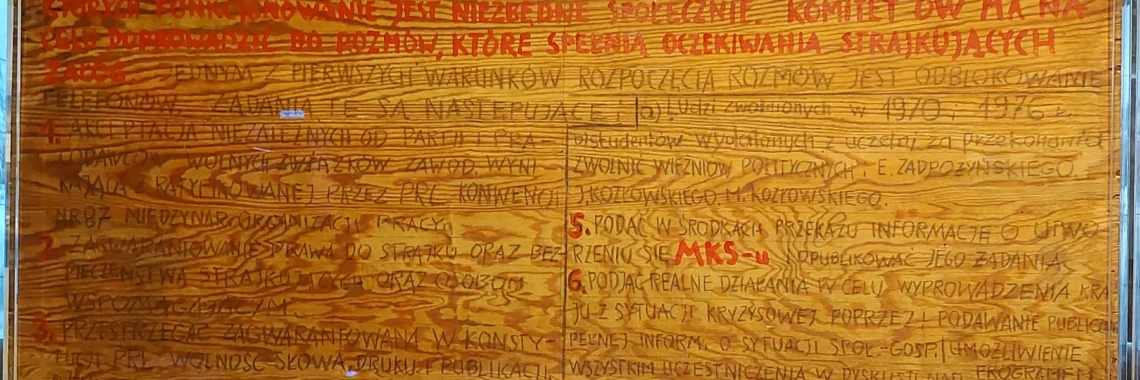 KTÓRYCH FUNKCJONOWANIE JEST NIEZBĘDNE SPOŁECZNIE. KOMITET ÓW MA NA
CELU DOPROWADZIĆ DO ROZMÓW, KTÓRE SPEŁNIĄ OCZEKIWANIA STRAJKUJĄCYCH
ZAŁÓG. JEDNYM Z PIERWSZYCH WARUNKÓW ROZPOCZĘCIA ROZMÓW JEST ODBLOKOWANIE
TELEFONÓW. ŻĄDANIA TE SĄ NASTĘPUJĄCE:
1. AKCEPTACJA NIEZALEŻNYCH OD PARTII I PRA-
CODAWCÓW WOLNYCH ZWIĄZKÓW ZAWOD. WYNI-
KAJĄCA Z RATYFIKOWANEJ PRZEZ PRL KONWENCJI
NR 87 MIĘDZYNAR. ORGANIZACJI PRACY.
2. ZAGWARANTOWANIE PRAWA DO STRAJKU ORAZ BEZ-
PIECZEŃSTWA STRAJKUJĄCYM ORAZ OSOBOM
WSPOMAGAJĄCYM.
3. PRZESTRZEGAĆ ZAGWARANTOWANĄ W KONSTY-
TUCJI PRL WOLNOŚĆ SŁOWA, DRUKU I PUBLIKACJI
a) Ludzi zwolnionych w 1970 i 1976 r.
b) studentów wydalonych z uczelni za przekonania
ZWOLNIĆ WIĘŹNIÓW POLITYCZNYCH: E. ZADROŻYŃSKIEGO,
J. KOZŁOWSKIEGO, M. KOZŁOWSKIEGO.
5. PODAĆ W ŚRODKACH PRZEKAZU INFORMACJĘ O UTWO-
RZENIU SIĘ MKS-u I OPUBLIKOWAĆ JEGO ŻĄDANIA
6. PODJĄĆ REALNE DZIAŁANIA W CELU WYPROWADZENIA KRA
JU Z SYTUACJI KRYZYSOWEJ POPRZEZ: PODAWANIE PUBLICZN
PEŁNEJ INFORM. O SYTUACJI SPOŁ.-GOSP. UMOŻLIWIENIE
WSZYSTKIM UCZESTNICZENIA W DYSKUSJI NAD PROGRAMEM